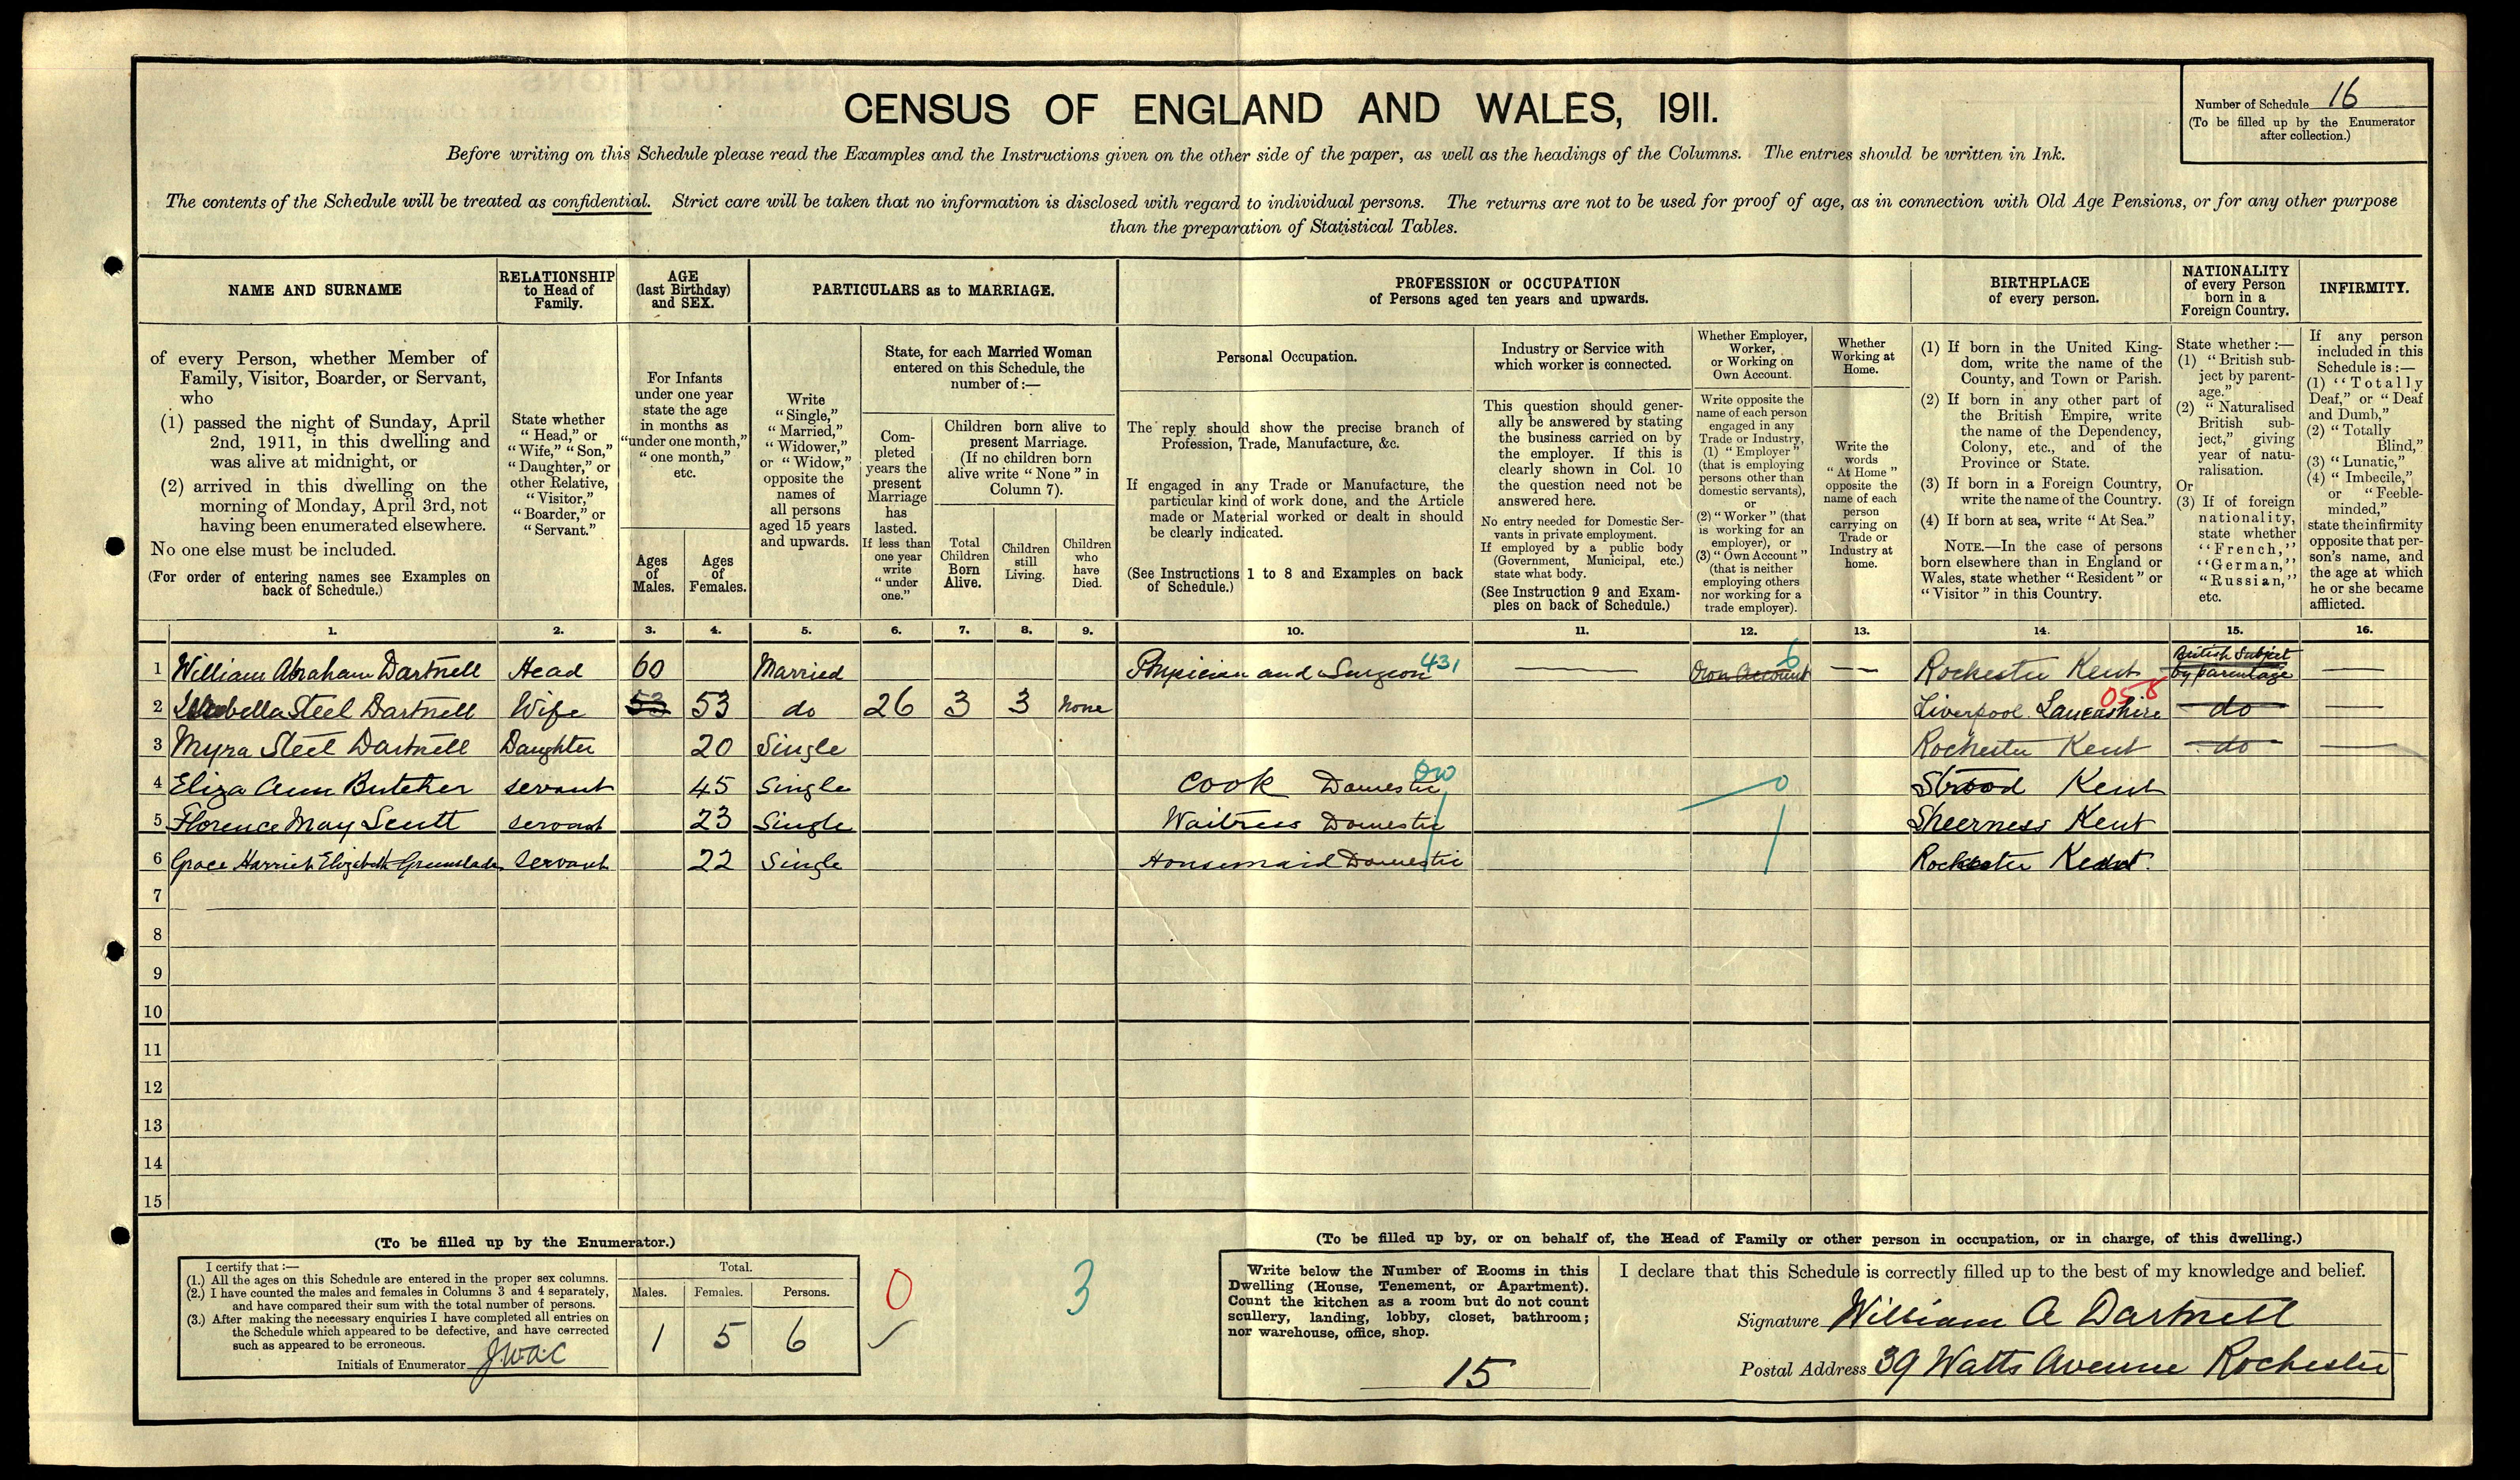 CENSUS OF ENGLAND AND WALES, 1911.
Number of Schedule 16
(To be filled up by the Enumerator
after collection.)
Before writing on this Schedule please read the Examples and the Instructions given on the other side of the paper, as well as the headings of the Columns. The entries should be written in Ink.
The contents of the Schedule will be treated as confidential. Strict care will be taken that no information is disclosed with regard to individual persons. The returns are not to be used for proof of age, as in connection with Old Age Pensions, or for any other purpose
than the preparation of Statistical Tables.
NAME AND SURNAME
of every Person, whether Member of
Family, Visitor, Boarder, or Servant,
who
(1) passed the night of Sunday, April
2nd, 1911, in this dwelling and
was alive at midnight, or
(2) arrived in this dwelling on the
morning of Monday, April 3rd, not
having been enumerated elsewhere.
No one else must be included.
(For order of entering names see Examples on
back of Schedule.)
RELATIONSHIP
to Head of
Family.
State whether
"Head," or
"Wife," "Son,"
"Daughter," or
other Relative,
"Visitor,"
"Boarder," or
"Servant."
AGE
(last Birthday)
and SEX.
For Infants
under one year
state the age
in months as
"under one month,"
"one month,"
etc.
Ages
of
Males.
Ages
of
Females.
PARTICULARS as to MARRIAGE.
Write
"Single,"
"Married,"
"Widower,"
or "Widow,"
opposite the
names of
all persons
aged 15 years
and upwards.
State, for each Married Woman
entered on this Schedule, the
number of:—
Com-
pleted
years the
present
Marriage
has
lasted.
If less than
one year
write
"under
one."
Children born alive to
present Marriage.
(If no children born
alive write "None" in
Column 7).
Total
Children
Born
Alive.
Children
still
Living.
Children
who
have
Died.
PROFESSION or OCCUPATION
of Persons aged ten years and upwards.
Personal Occupation.
The reply should show the precise branch of
Profession, Trade, Manufacture, &c.
If engaged in any Trade or Manufacture, the
particular kind of work done, and the Article
made or Material worked or dealt in should
be clearly indicated.
(See Instructions 1 to 8 and Examples on back
of Schedule.)
Industry or Service with
which worker is connected.
This question should gener-
ally be answered by stating
the business carried on by
the employer. If this is
clearly shown in Col. 10
the question need not be
answered here.
No entry needed for Domestic Ser-
vants in private employment.
If employed by a public body
(Government, Municipal, etc.)
state what body.
(See Instruction 9 and Exam-
ples on back of Schedule.)
Whether Employer,
Worker,
or Working on
Own Account.
Write opposite the
name of each person
engaged in any
Trade or Industry,
(1) "Employer"
(that is employing
persons other than
domestic servants),
or
(2) "Worker" (that
is working for an
employer), or
(3) "Own Account"
(that is neither
employing others
nor working for a
trade employer).
Whether
Working at
Home.
Write the
words
"At Home"
opposite the
name of each
person
carrying on
Trade or
Industry at
home.
BIRTHPLACE
of every person.
(1) If born in the United King-
dom, write the name of the
County, and Town or Parish.
(2) If born in any other part of
the British Empire, write
the name of the Dependency,
Colony, etc., and of the
Province or State.
(3) If born in a Foreign Country,
write the name of the Country.
(4) If born at sea, write "At Sea."
NOTE.—In the case of persons
born elsewhere than in England or
Wales, state whether "Resident" or
"Visitor" in this Country.
NATIONALITY
of every Person
born in a
Foreign Country.
State whether:—
(1) "British sub-
ject by parent-
age."
(2) "Naturalised
British sub-
ject," giving
year of natu-
ralisation.
Or
(3) If of foreign
nationality,
state whether
"French,"
"German,"
"Russian,"
etc.
INFIRMITY.
If any person
included in this
Schedule is:—
(1) "Totally
Deaf," or "Deaf
and Dumb,"
(2) "Totally
Blind,"
(3) "Lunatic,"
(4) "Imbecile,"
or "Feeble-
minded,"
state the infirmity
opposite that per-
son's name, and
the age at which
he or she became
afflicted.
1. 2. 3. 4. 5. 6. 7. 8. 9. 10. 11. 12. 13. 14. 15. 16.
1 William Abraham Dartnell Head 60 Married Physician and Surgeon 431 Own Account 6 — Rochester Kent British Subject by parentage —
2 Isabella Steel Dartnell Wife 53 53 do 26 3 3 None Liverpool Lancashire 058 do —
3 Myra Steel Dartnell Daughter 20 Single Rochester Kent do —
4 Eliza Ann Butcher Servant 45 Single Cook Domestic 0 Strood Kent
5 Florence May Scutt Servant 23 Single Waitress Domestic Sheerness Kent
6 Grace Harriet Elizabeth Greenslade Servant 22 Single Housemaid Domestic Rochester Kent.
7
8
9
10
11
12
13
14
15
(To be filled up by the Enumerator.)
I certify that:—
(1.) All the ages on this Schedule are entered in the proper sex columns.
(2.) I have counted the males and females in Columns 3 and 4 separately,
and have compared their sum with the total number of persons.
(3.) After making the necessary enquiries I have completed all entries on
the Schedule which appeared to be defective, and have corrected
such as appeared to be erroneous.
Initials of Enumerator J.W.A.C
Total.
Males. Females. Persons.
1 5 6
0
3
(To be filled up by, or on behalf of, the Head of Family or other person in occupation, or in charge, of this dwelling.)
Write below the Number of Rooms in this
Dwelling (House, Tenement, or Apartment).
Count the kitchen as a room but do not count
scullery, landing, lobby, closet, bathroom;
nor warehouse, office, shop.
15
I declare that this Schedule is correctly filled up to the best of my knowledge and belief.
Signature William A Dartnell
Postal Address 39 Watts Avenue Rochester